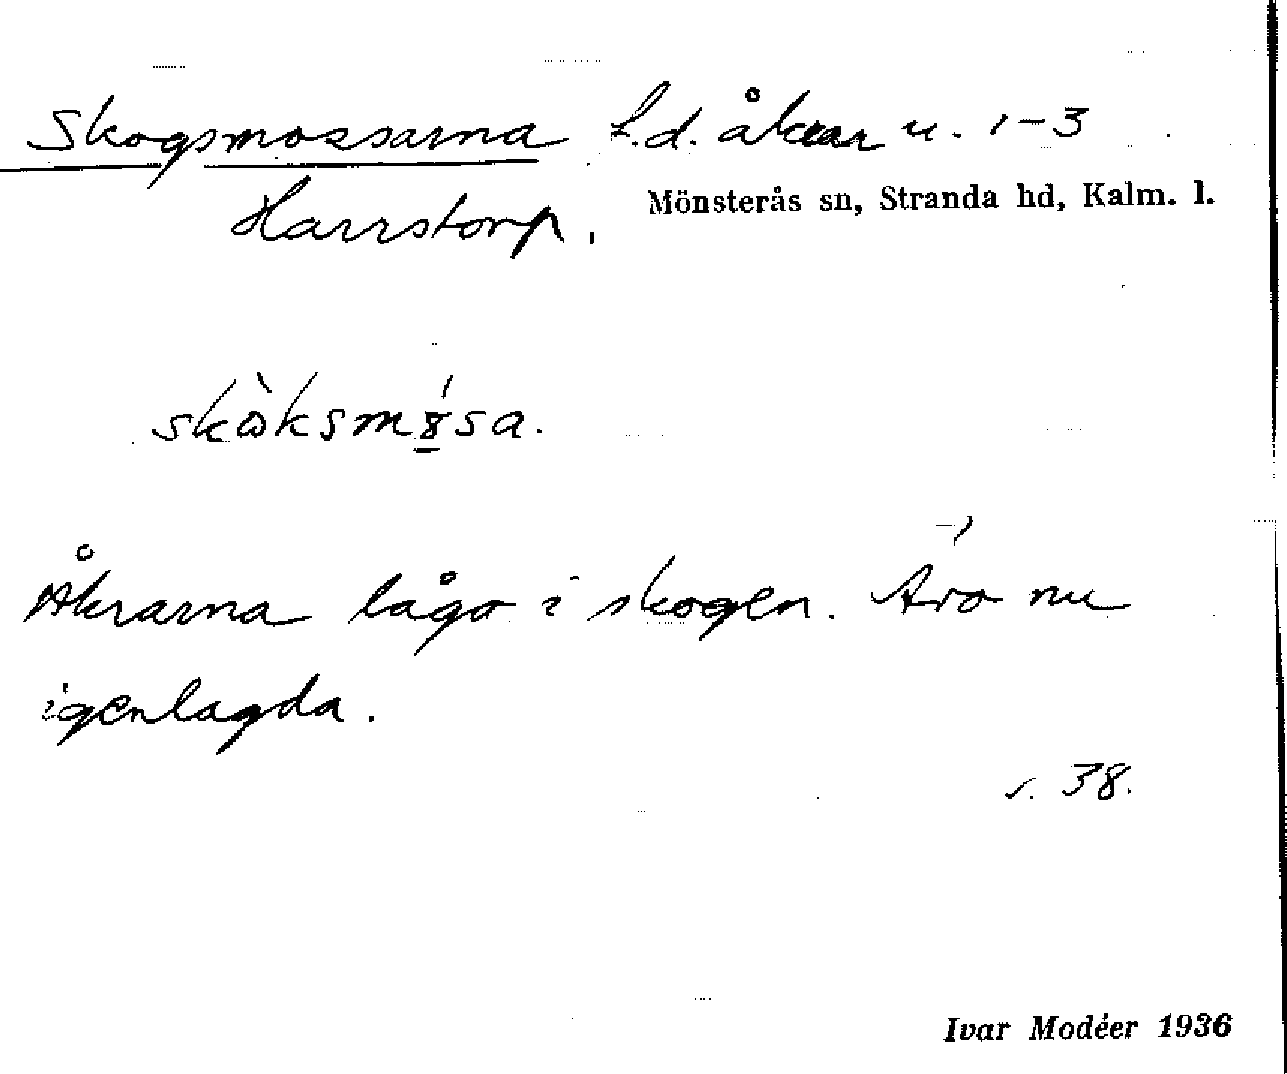 Skogsmossarna f.d. åkrar u. 1-3
Harrstorp. Mönsterås sn, Stranda hd, Kalm. l.
Åkrarna lågo i skogen. Äro nu
igenlagda.
s. 38.
Ivar Modéer 1936